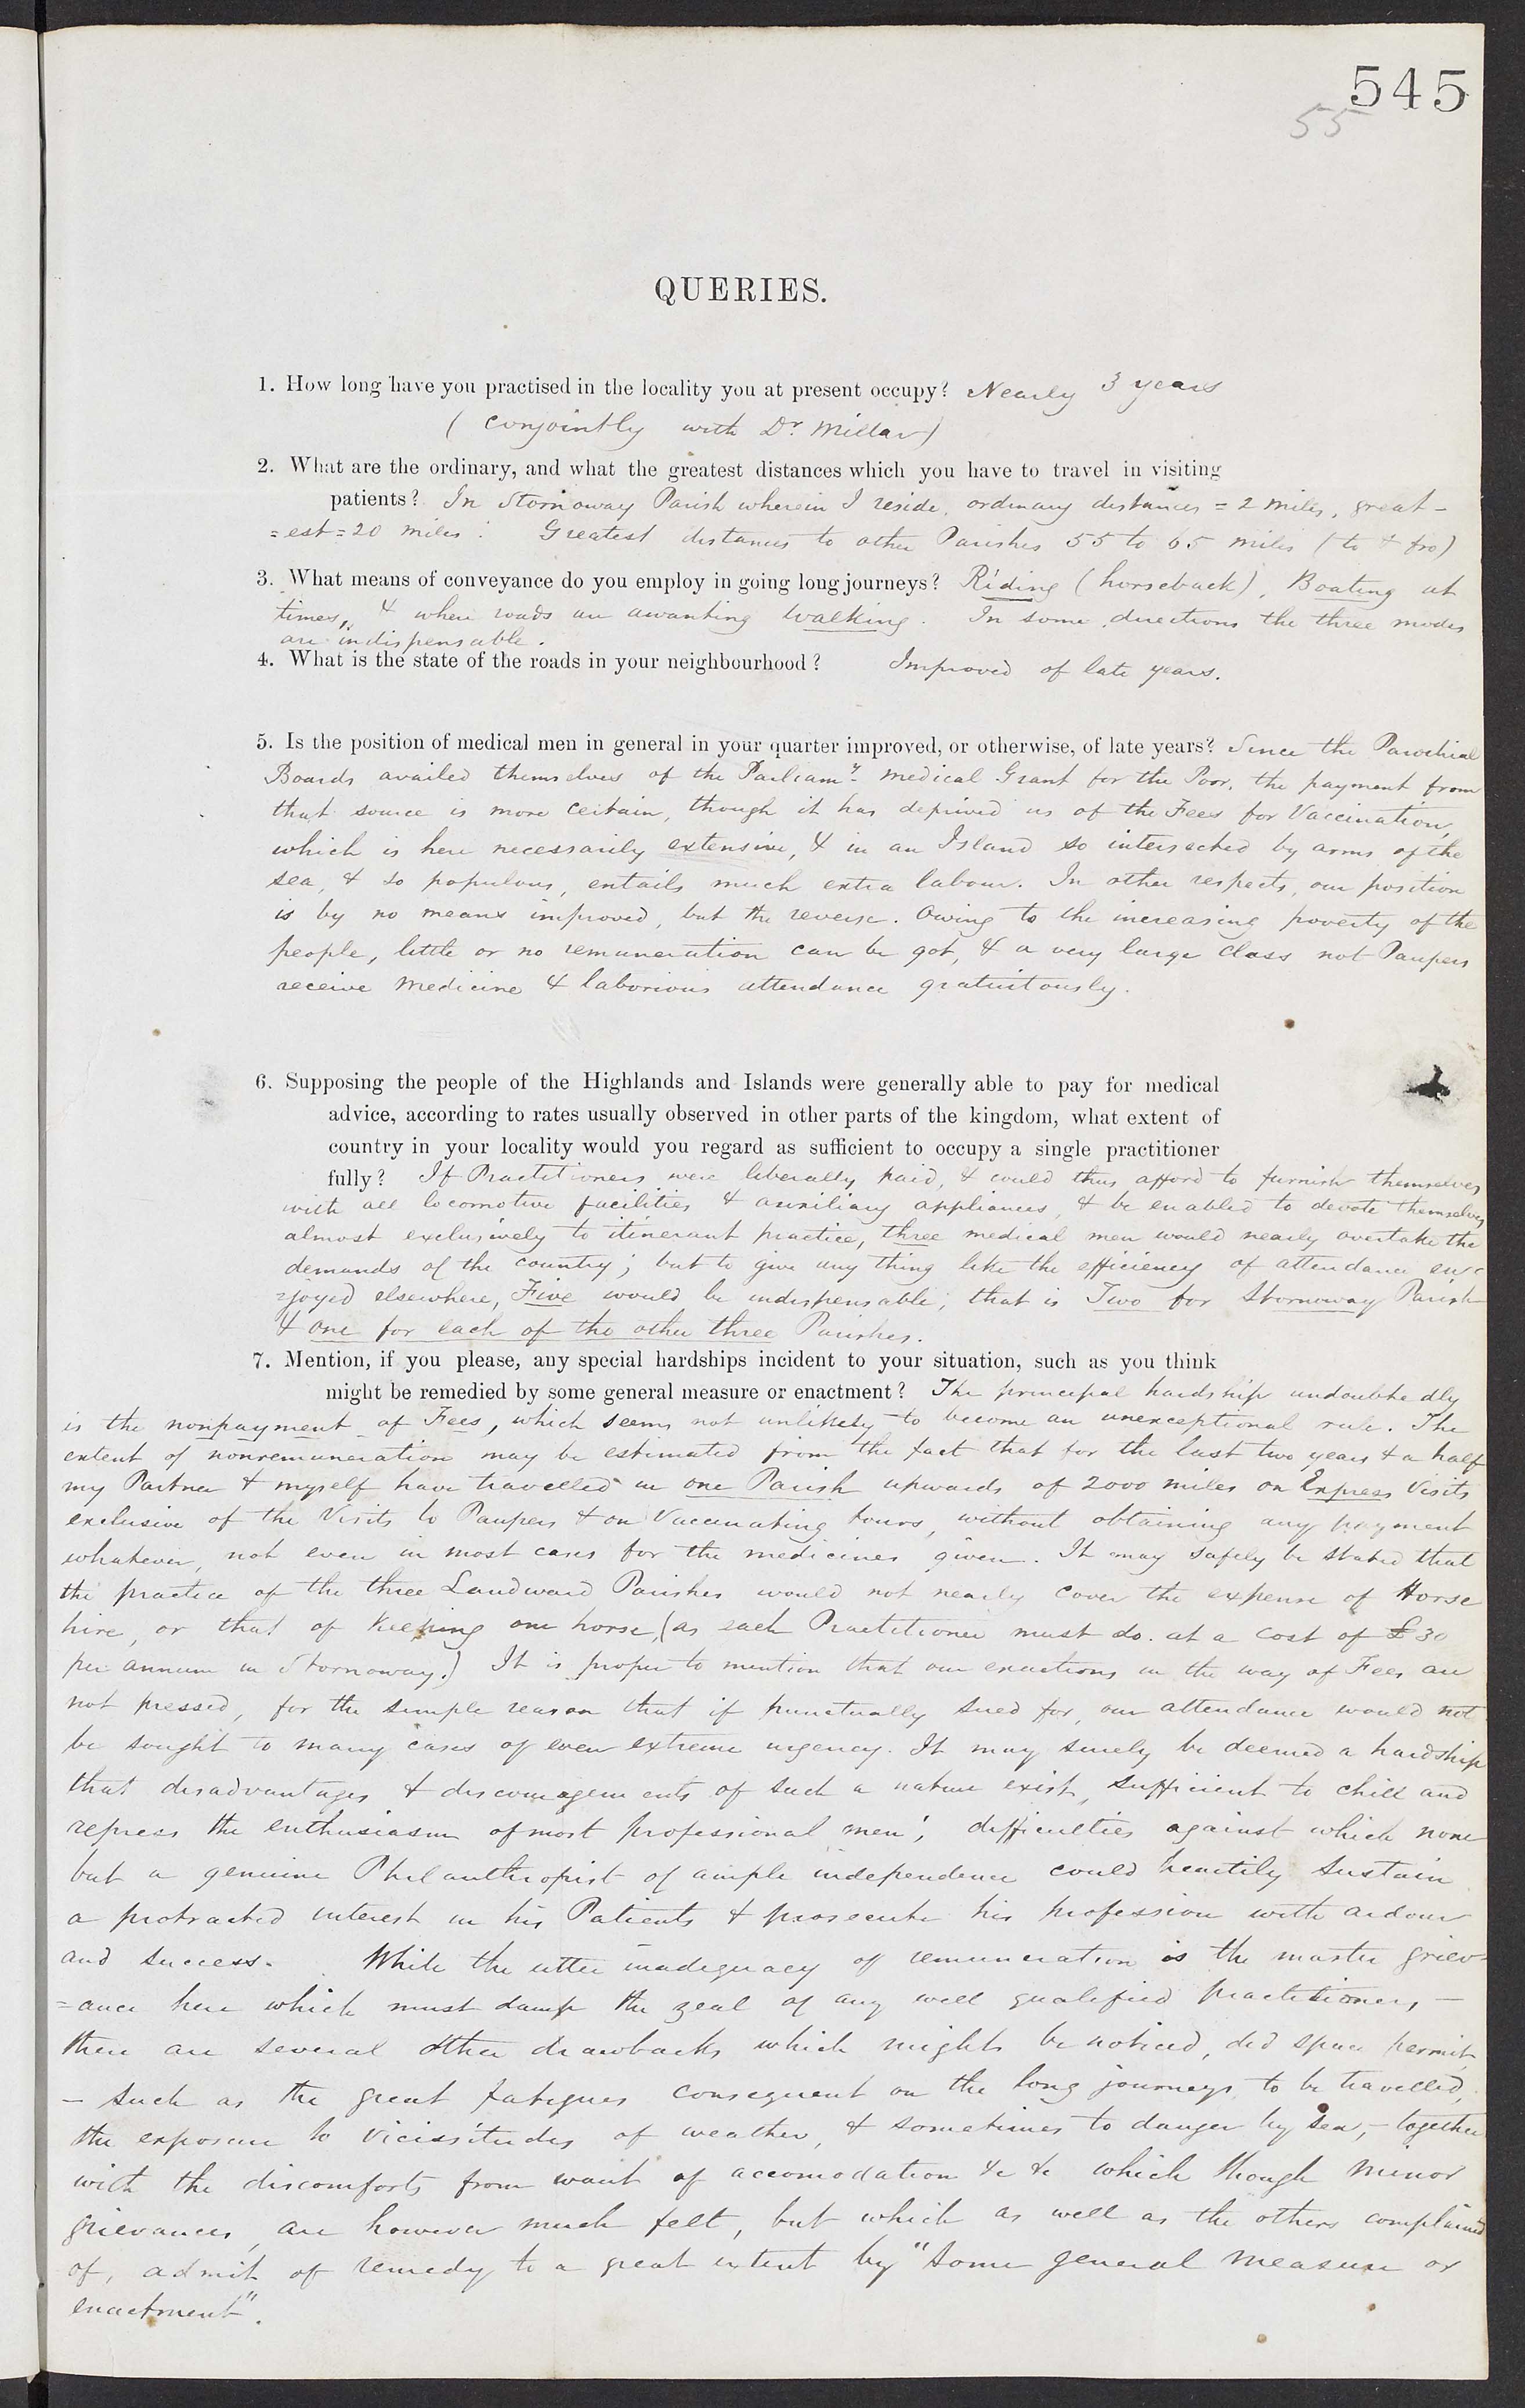 545
55
QUERIES.
1. How long have you practised in the locality you at present occupy? Nearly 3 years
( conjointly with Dr. Millar)
2. What are the ordinary, and what the greatest distances which you have to travel in visiting
patients? In Stornoway Parish wherein I reside, ordinary distances = 2 miles, great-
=est = 20 miles. Greatest distances to other Parishes 55 to 65 miles (to & fro)
3. What means of conveyance do you employ in going long journeys? Riding (horseback), Boating at
times, & when roads are awanting walking. In some directions the three modes
are indispensable.
4. What is the state of the roads in your neighbourhood? Improved of late years.
5. Is the position of medical men in general in your quarter improved, or otherwise, of late years? Since the Parochial
Boards availed themselves of the Parliamy. Medical Grant for the Poor, the payment from
that source is more certain, though it has deprived us of the Fees for Vaccination,
which is here necessarily extensive, & in an Island so intersected by arms of the
sea, & so populous, entails much extra labour. In other respects, our position
is by no means improved, but the reverse. Owing to the increasing poverty of the
people, little or no remuneration can be got, & a very large Class not Paupers
receive Medicine & laborious attendance gratuitously.
6. Supposing the people of the Highlands and Islands were generally able to pay for medical
advice, according to rates usually observed in other parts of the kingdom, what extent of
country in your locality would you regard as sufficient to occupy a single practitioner
fully? If Practitioners were liberally paid, & could thus afford to furnish themselves
with all locomotive facilities & auxiliary appliances, & be enabled to devote themselves
almost exclusively to itinerant practice, three medical men would nearly overtake the
demands of the country; but to give any thing like the efficiency of attendance en=
=joyed elsewhere, Five would be indispensable; that is Two for Stornoway Parish
& one for each of the other three Parishes.
7. Mention, if you please, any special hardships incident to your situation, such as you think
might be remedied by some general measure or enactment? The principal hardship undoubtedly
is the nonpayment of Fees, which seems not unlikely to become an unexceptional rule. The
extent of nonremuneration may be estimated from the fact that for the last two years & a half
my Partner & myself have travelled in one Parish upwards of 2000 miles on Express Visits
exclusive of the Visits to Paupers & on Vaccinating tours, without obtaining any payment
whatever, not even in most cases for the medicines given. It may safely be stated that
the practice of the three Landward Parishes would not nearly cover the expense of Horse
hire, or that of keeping one horse, (as each Practitioner must do. at a cost of £30
per annum in Stornoway.) It is proper to mention that our exactions in the way of Fees are
not pressed, for the simple reason that if punctually sued for, our attendance would not
be sought to many cases of even extreme urgency. It may surely be deemed a hardship
that disadvantages & discouragements of such a nature exist, sufficient to chill and
repress the enthusiasm of most professional men; difficulties against which none
but a genuine Philanthropist of ample independence could heartily sustain
a protracted interest in his Patients & prosecute his profession with ardour
and success. While the utter inadequacy of remuneration is the master griev=
=ance here which must damp the zeal of any well qualified practitioner, -
there are several other drawbacks which might be noticed, did space permit,
- such as the great fatigues consequent on the long journeys to be travelled,
the exposure to vicissitudes of weather, & sometimes to danger by sea, - together
with the discomforts from want of accomodation &c &c which though minor
grievances, are however much felt, but which as well as the others complained
of, admit of remedy to a great extent by "some general measure or
enactment".